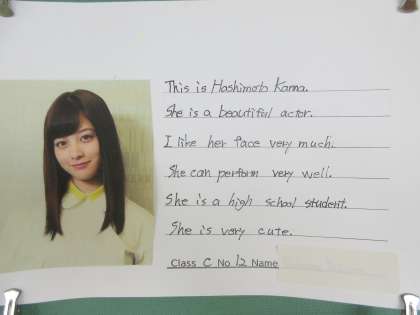 This is Hashimoto Kanna.
She is a beautiful actor.
I like her face very much.
She can perform very well.
She is a high school student.
She is very cute.
Class C No 12 Name